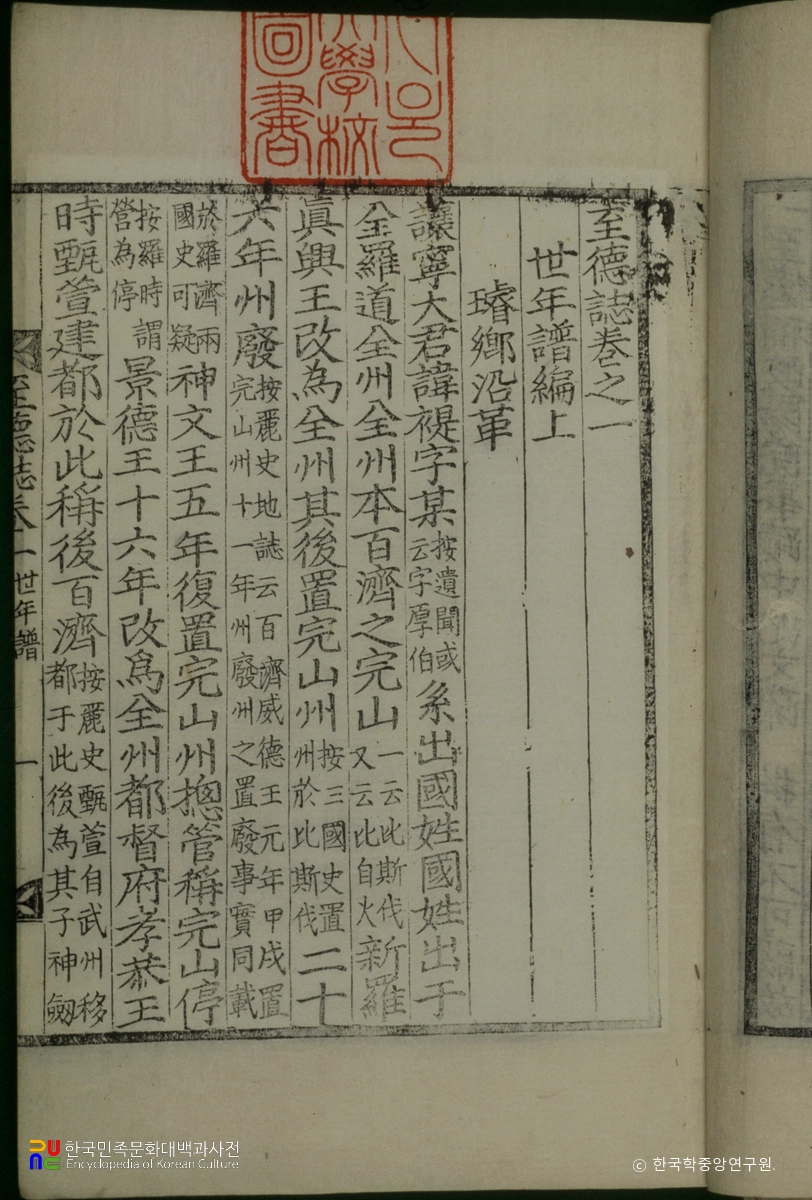 至德誌卷之一
世年譜編上
璿鄉沿革
讓寧大君諱禔字某按遺聞或云字厚伯系出國姓國姓出于
全羅道全州全州本百濟之完山一云比斯伐又云比自火新羅
眞興王改為全州其後置完山州按三國史置州於比斯伐二十
六年州廢按麗史地誌云百濟威德王元年甲戌置完山州十一年州廢州之置廢事實同載
於羅濟兩國史可疑神文王五年復置完山州摠管稱完山停
按羅時謂營為停景德王十六年改爲全州都督府孝恭王
時甄萱建都於此稱後百濟按麗史甄萱自武州移都于此後為其子神劒
至德誌卷一 世年譜 一
圖書
學校
한국민족문화대백과사전
Encyclopedia of Korean Culture
© 한국학중앙연구원.